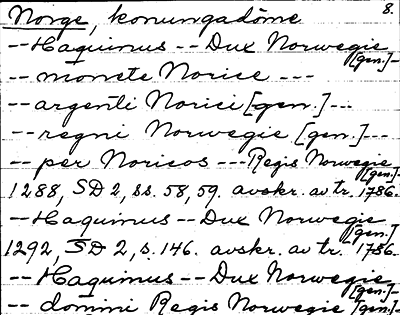 Norge, konungadöme 8.
-- Haquinus -- Dux Norwegie [gen.] --
-- monete Norice ---
-- argenti Norici [gen.] ---
-- regni Norwegie [gen.] ---
-- per Noricos --- Regis Norwegie [gen.] --
1288, SD 2, ss. 58, 59. avskr. av tr. 1786.
-- Haquinus -- Dux Norwegie [gen.]
1292, SD 2, s. 146. avskr. av tr. 1786.
-- Haquinus -- Dux Norwegie [gen.] --
-- domini Regis Norwegie [gen.] --